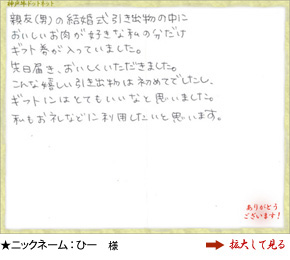 神戸牛ドットネット
親友(男)の結婚式引き出物の中に
おいしいお肉が好きな私の分だけ
ギフト券が入っていました。
先日届き、おいしくいただきました。
こんな嬉しい引き出物は初めてでしたし、
ギフトにはとてもいいなと思いました。
私もお礼などに利用したいと思います。
ありがとう
ございます!
★ニックネーム:ひー 様
拡大して見る